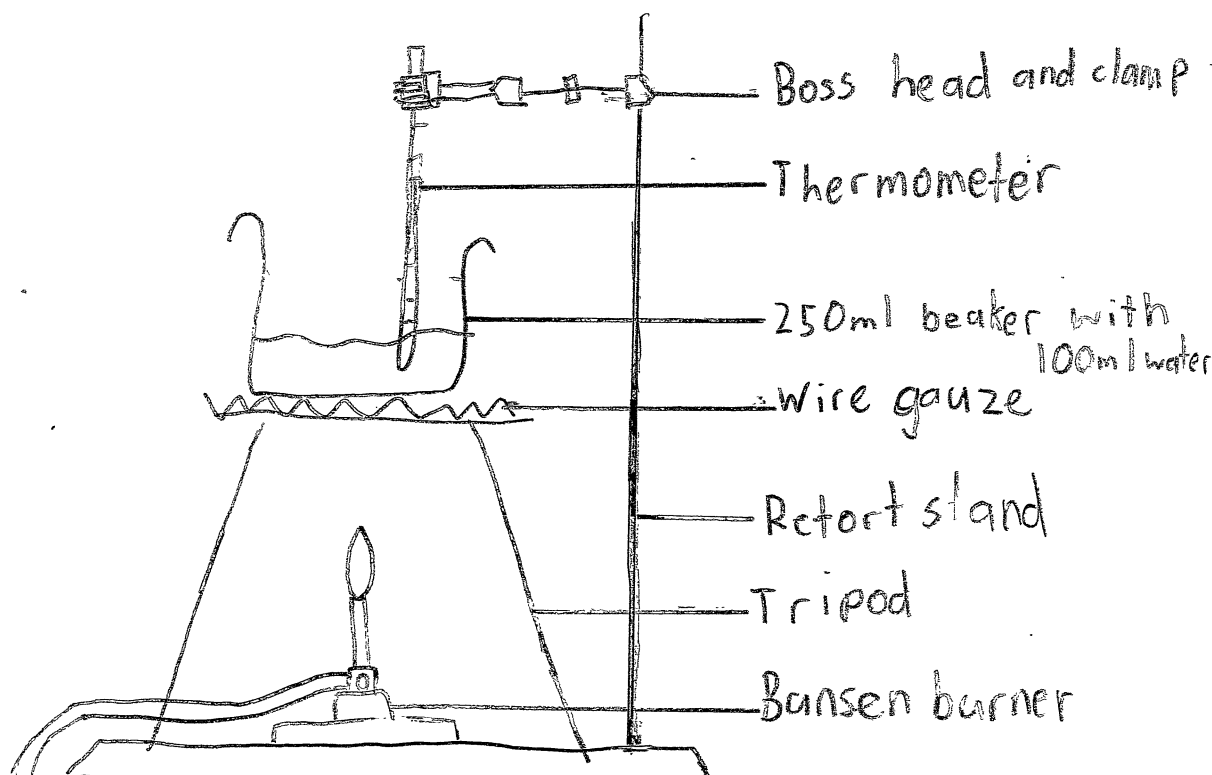 Boss head and clamp
Thermometer
250ml beaker with
100ml water
Wire gauze
Retort stand
Tripod
Bansen barner